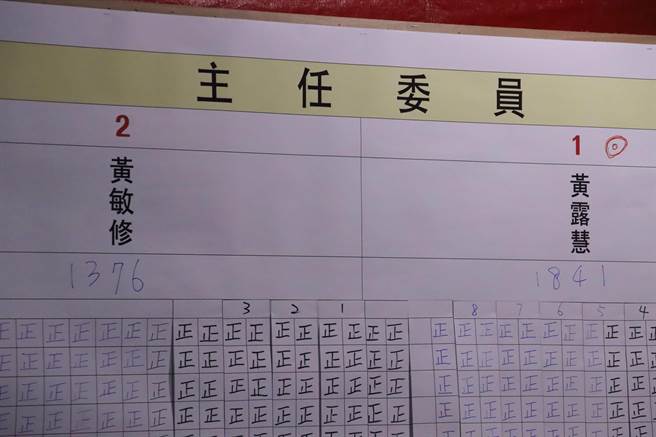 主任委員
2
黃敏修
1376
1
黃露慧
1841
3 2 1
8 7 6 5 4
正正正正正正正正正正正正正正正正正 正正正正正正正正正
正正正正正正正正正正正正正正正正正 正正正正正正正正正
正正正正正正正正正正正正正正正正正 正正正正正正正正正
正正正正正正正正正正正正正正正正正 正正正正正正正正正